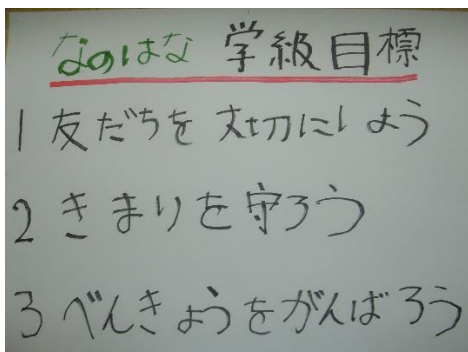 なのはな 学級目標
1 友だちを 大切にしよう
2 きまりを守ろう
3 べんきょうをがんばろう